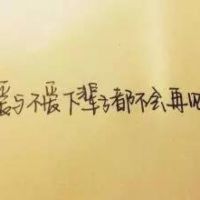 爱与不爱下辈子都不会再